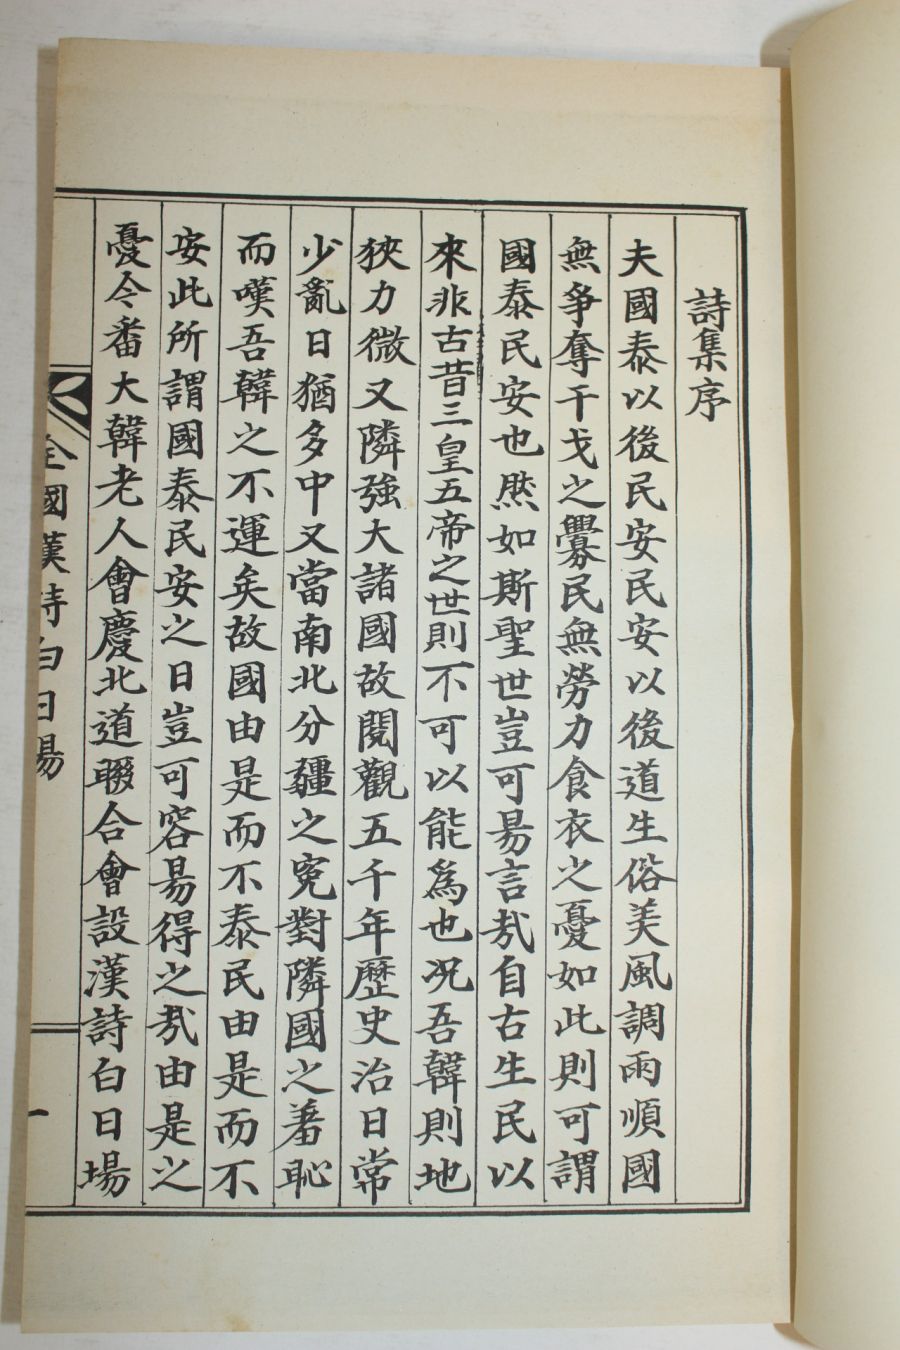 詩集序
夫國泰以後民安民安以後道生俗美風調雨順國
無爭奪干戈之釁民無勞力食衣之憂如此則可謂
國泰民安也然如斯聖世豈可易言哉自古生民以
來非古昔三皇五帝之世則不可以能爲也况吾韓則地
狹力微又隣強大諸國故閱觀五千年歷史治日常
少亂日猶多中又當南北分疆之寃對隣國之羞恥
而嘆吾韓之不運矣故國由是而不泰民由是而不
安此所謂國泰民安之日豈可容易得之哉由是之
憂今番大韓老人會慶北道聯合會設漢詩白日場
全國漢詩白日場
一